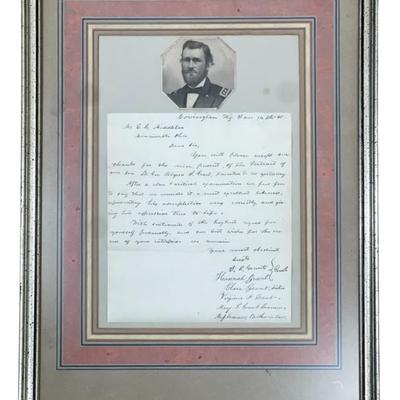 Covington Ky. Jan 14th
Mr E. C. Middleton
Cincinnati Ohio
Dear Sir,
You will please accept our
thanks for the nice present of the Portrait of
our son Lt. Gen Ulysses S. Grant, presented to us yesterday
After a close & critical examination we feel free
to say that we consider it a most excellent likeness,
representing his complection very exactly, and giv
ing his expression true to life.
With sentiments of the highest regard for
yourself personally, and our best wishes for the suc
cess of your enterprise we remain
Your most obedient
J. R. Grant
Hannah Grant
Clara Grant, Sister
Virginia P. Grant
Mary F. Grant